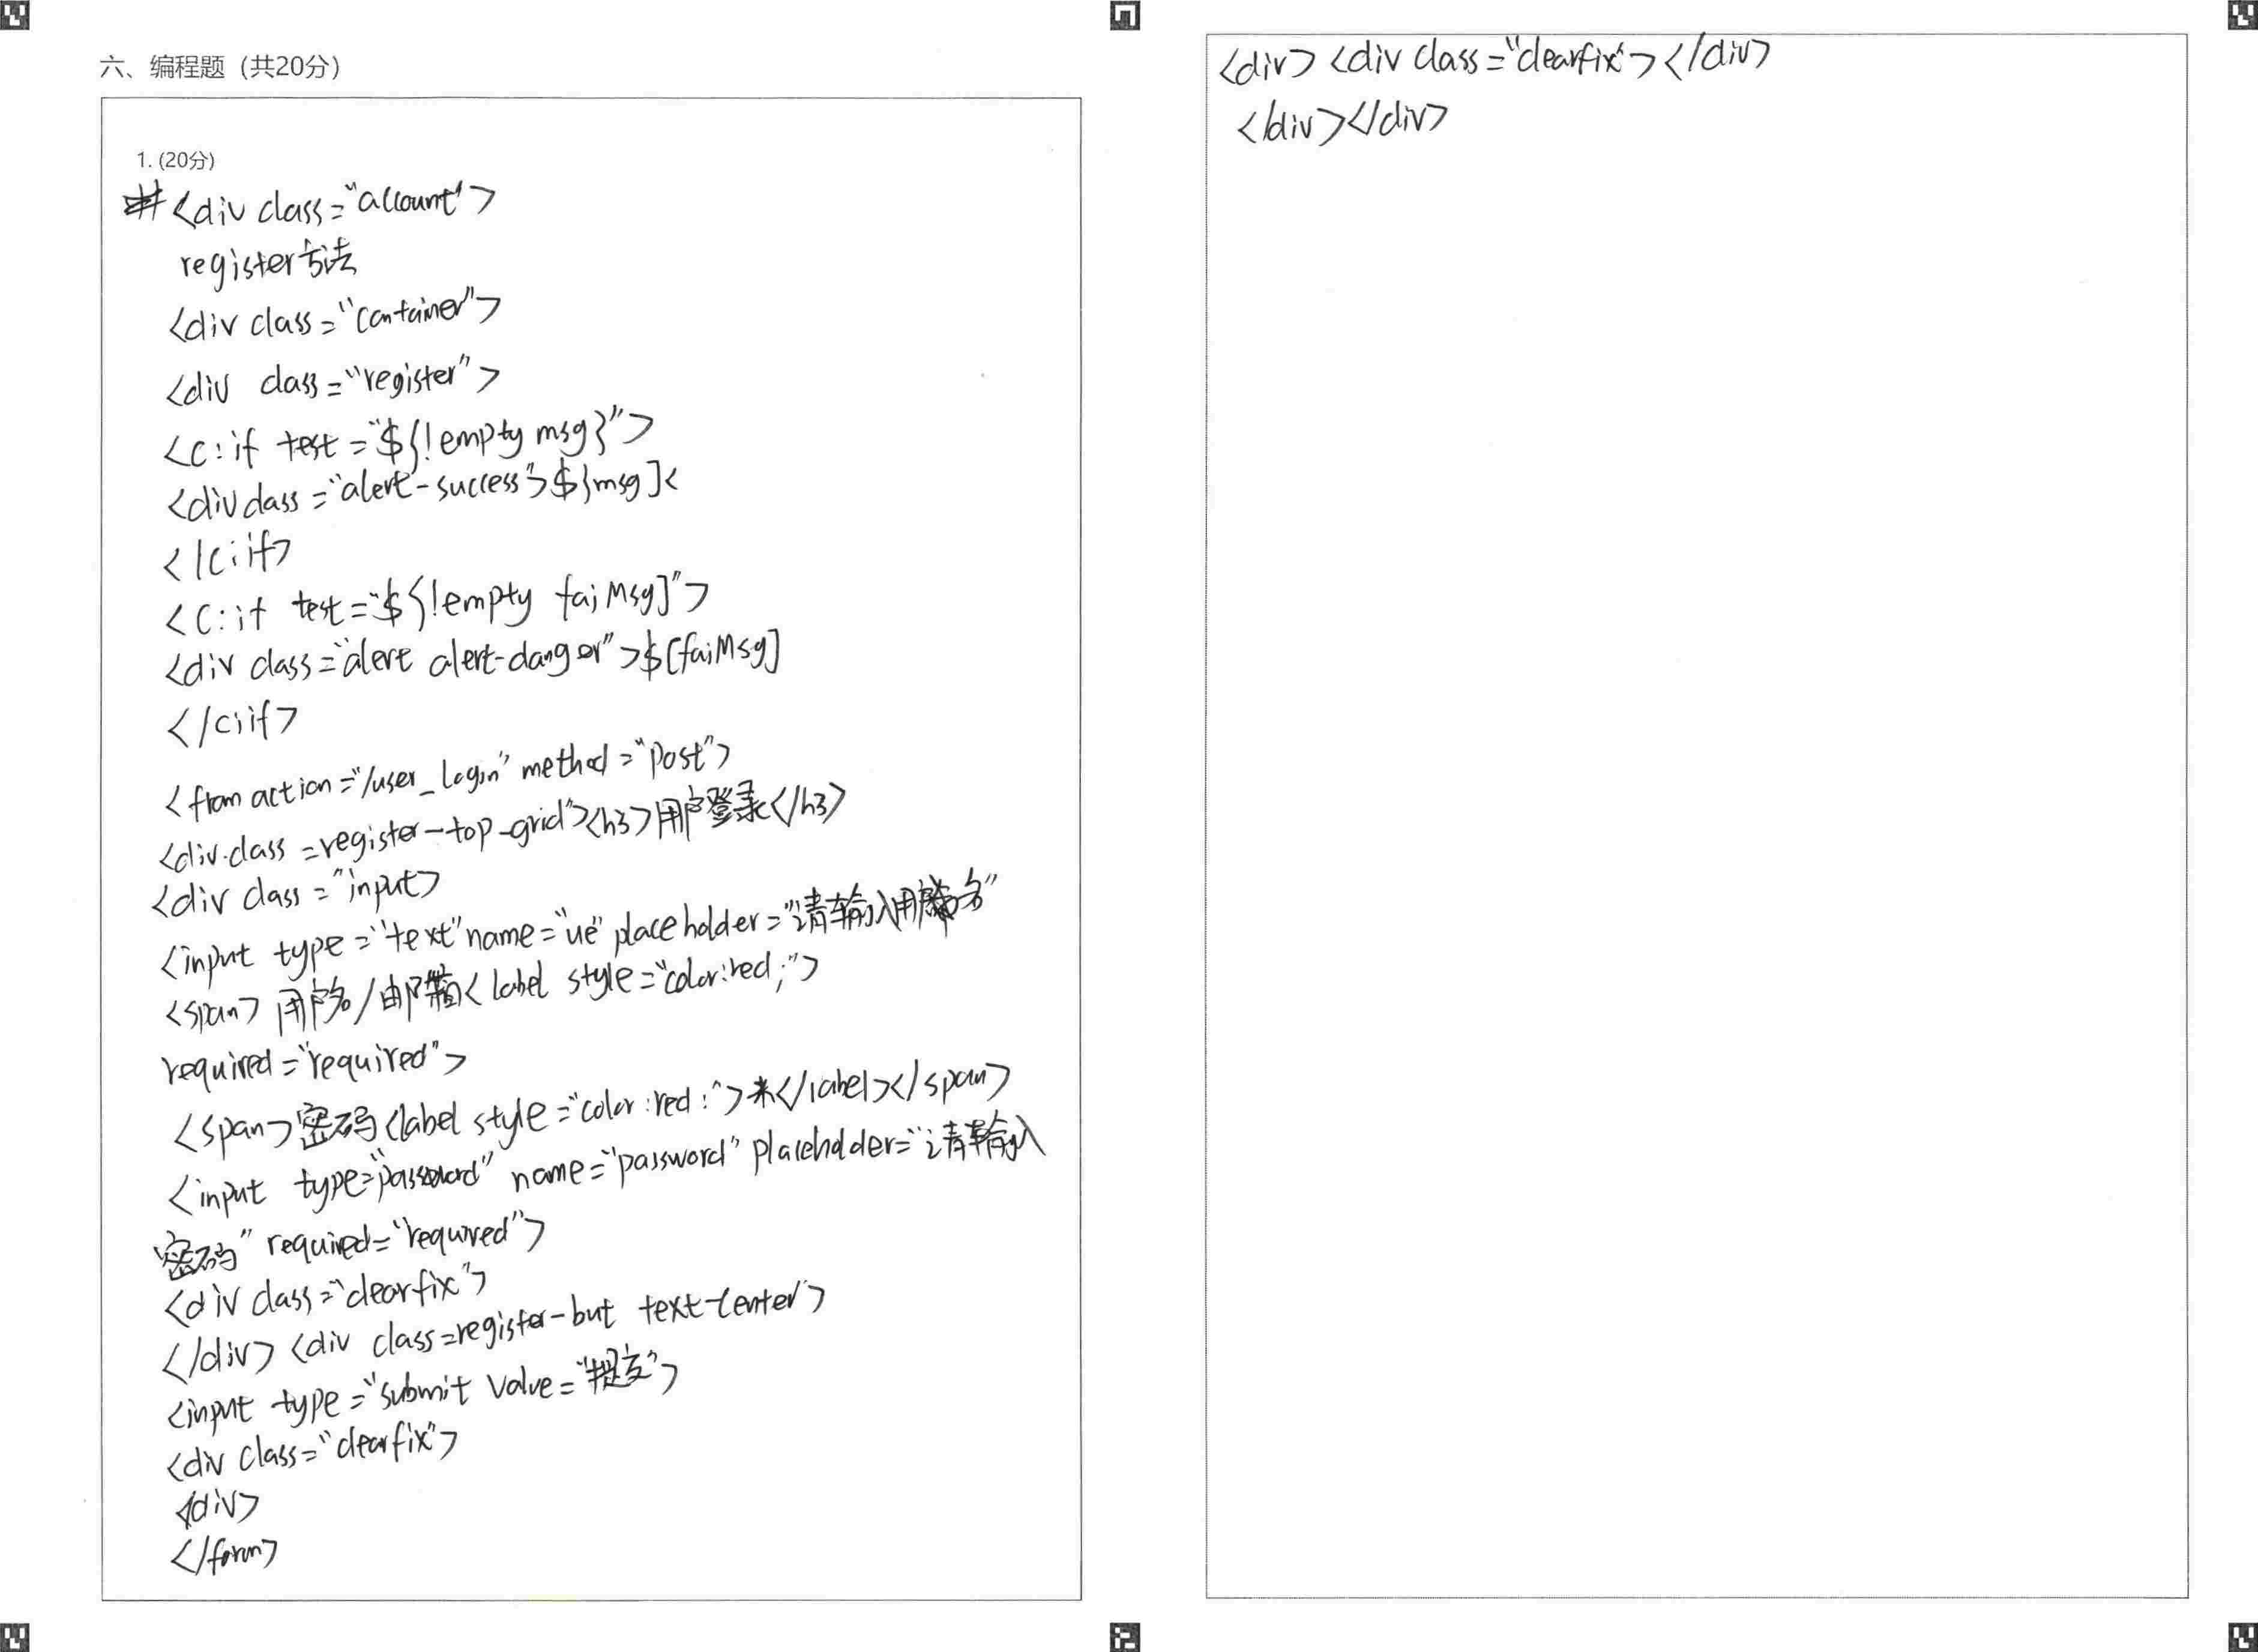 六、编程题（共20分）
1. (20分)
<div class="account">
register方法
<div class="container">
<div class="register">
<c:if test="${!empty msg}">
<div class="alert-success">${msg]<
</c:if>
<c:if test="${!empty faiMsg]">
<div class="alert alert-danger">$[faiMsg]
</c:if>
<from action="/user_login" method="post">
<div.class=register-top-grid"><h3>用户登录</h3>
<div class="input>
<input type="text"name="ue" placeholder="请输入用户名"
<span>用户名/邮箱<label style="color:red;">
required="required">
<span>密码<label style="color:red:">*</label></span>
<input type="password" name="password" placeholder="请输入
密码" required="required">
<div class="clearfix">
</div><div class=register-but text-center">
<input type="submit value="提交">
<div class="clearfix">
</div>
</form>
<div><div class="clearfix"></div>
</div></div>